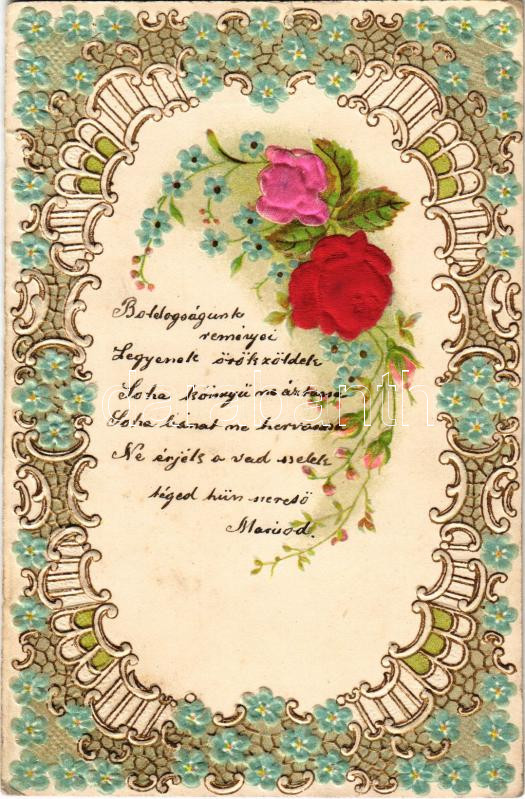 Boldogságunk
reményei
Legyenek örökzöldek
Soha könnyü ne áztassa
Soha bánat ne hervassza
Ne érjék a vad szelek
téged hűn szerető
Mariod.
darabanth